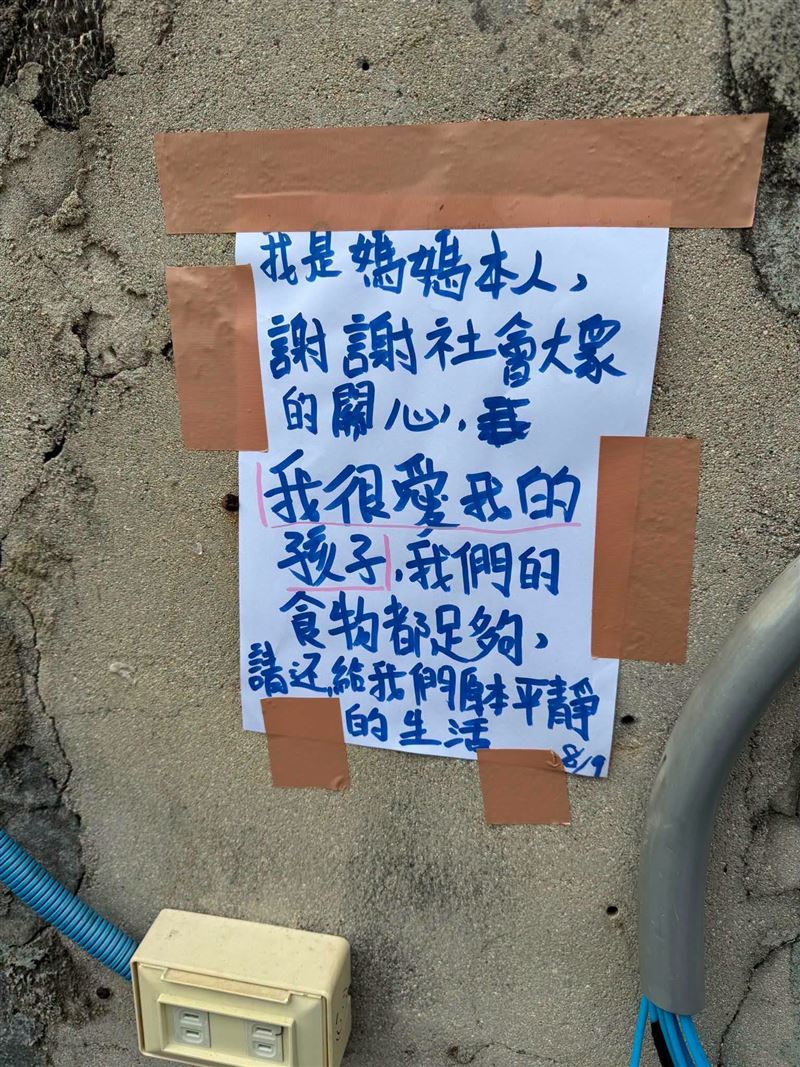 我是媽媽本人，
謝謝社會大眾
的關心，
我很愛我的
孩子，我們的
食物都足夠，
請还給我們原本平靜
的生活
8/9